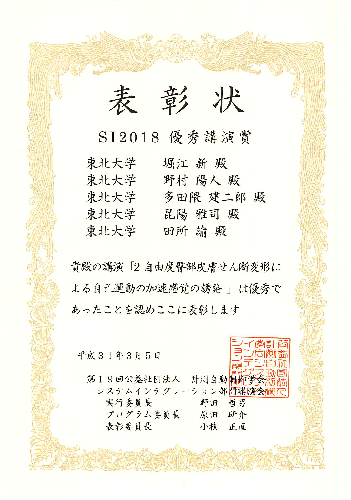 表彰状
SI2018 優秀講演賞
東北大学 堀江 新 殿
東北大学 野村 陽人 殿
東北大学 多田隈 建二郎 殿
東北大学 昆陽 雅司 殿
東北大学 田所 諭 殿
貴殿の講演「2自由度臀部皮膚せん断変形に
よる自己運動の加速感覚の誘発」は優秀で
あったことを認めここに表彰します
平成31年3月5日
第19回公益社団法人 計測自動制御学会
システムインテグレーション部門講演会
実行委員長
プログラム委員長 原田 研介
表彰委員長 小枝 正直